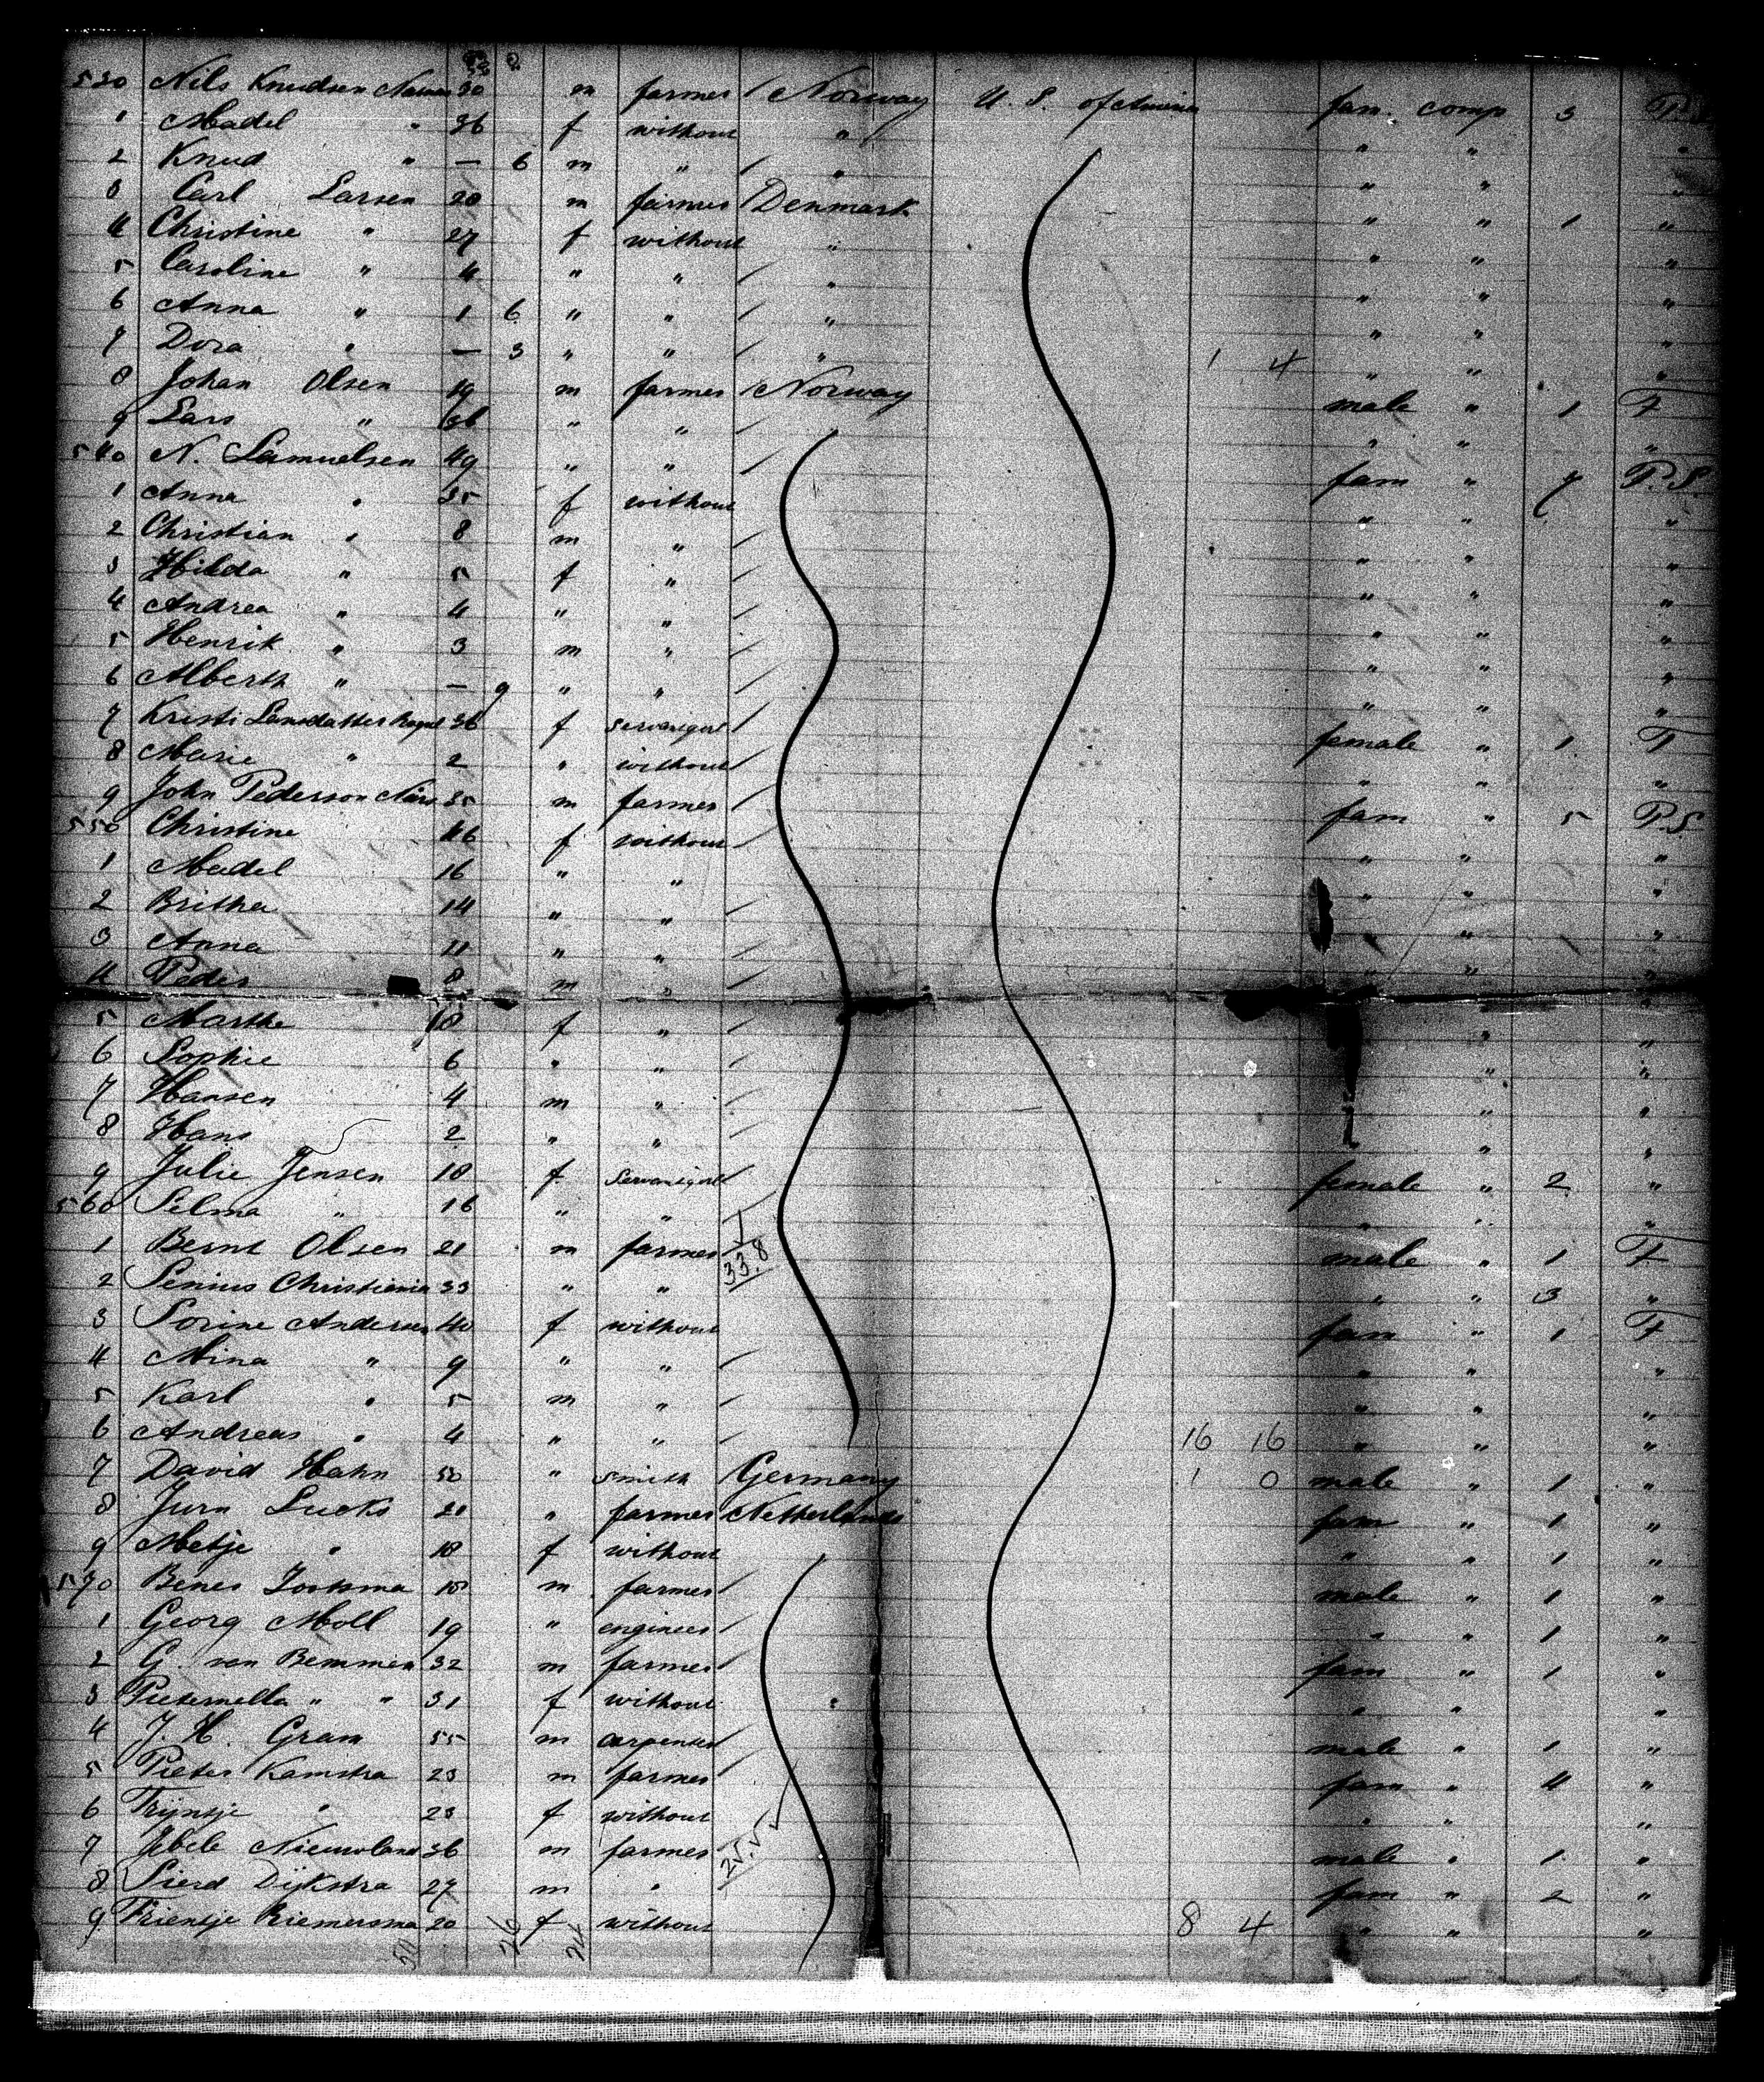 530 Nils Knudsen 30 m farmer Norway U. S. of America fam comp 3 P. S.
1 Madel " 26 f without " " " "
2 Knud " — 6 m " " " " "
3 Carl Larsen 28 m farmer Denmark " " "
4 Christine " 27 f without " " " 1 "
5 Caroline " 4 " " " " " "
6 Anna " 1 6 " " " " " "
7 Dora " — 3 " " " 1 4 " " "
8 Johan Olsen 19 m farmer Norway male " 1 F
9 Lars " " " " " "
540 N. Samuelsen 49 " " fam " 7 P. S.
1 Anna " 35 f without " " "
2 Christian " 8 m " " " "
3 Hilda " 5 f " " " "
4 Andrea " 4 " " " " "
5 Henrik " 3 m " " " "
6 Alberth " — 9 " " " " "
7 Kristi 36 f servantgirl female " 1 F
8 Marie " 2 " without " " "
9 John Pederson 35 m farmer fam " 5 P.S.
550 Christine 46 f without " " "
1 Madel 16 " " " " "
2 Britha 14 " " " " "
3 Anna 11 " " " " "
4 Peder 8 m " " "
5 Marthe 18 f " " "
6 Sophie 6 " " " "
7 Hansen 4 m " " "
8 Hans 2 " " " "
9 Julie Jensen 18 f servantgirl female " 2 "
560 Selma " 16 " " " " "
1 Bernt Olsen 21 m farmer 33.8 male " 1 F
2 Senius Christiania 33 " " " " 3 "
3 Sorine Andersen 40 f without fam " 1 F
4 Mina " 9 " " " " "
5 Karl " 5 m " " " "
6 Andreas " 4 " " 16 16 " " "
7 David Hahn 50 " smith Germany 1 0 male " 1 "
8 Jurn Lucks 21 " farmer Netherlands fam " 1 "
9 Metje " 18 f without " " 1 "
570 Benes 18 m farmer male " 1 "
1 Georg Moll 19 " engineer " " 1 "
2 G. van Bemmen 32 m farmer fam " 1 "
3 Pieternella " " 31 f without " " "
4 J. H. Gram 55 m carpenter male " 1 "
5 Pieter Kamstra 23 m farmer fam " 4 "
6 Trijntje " 23 f without " " "
7 Jebele Nieuwland 36 m farmer male " 1 "
8 Sierd Dijkstra 27 m " fam " 2 "
9 Trientje Riemersma 20 f without 8 4 " " "